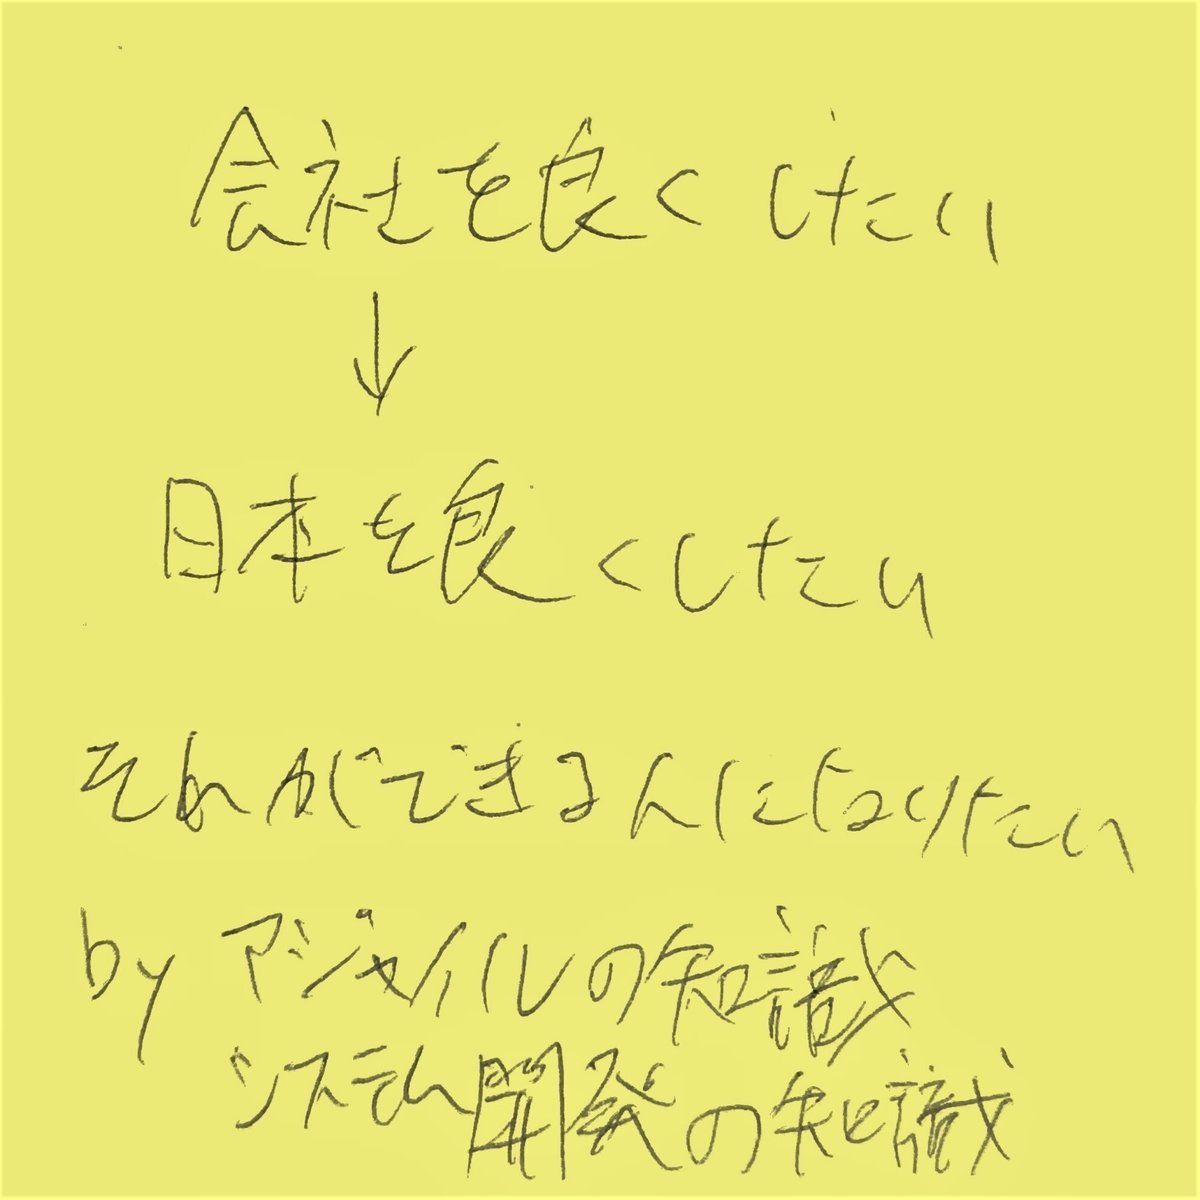 会社を良くしたい
↓
日本を良くしたい
それができる人になりたい
by アジャイルの知識
システム開発の知識